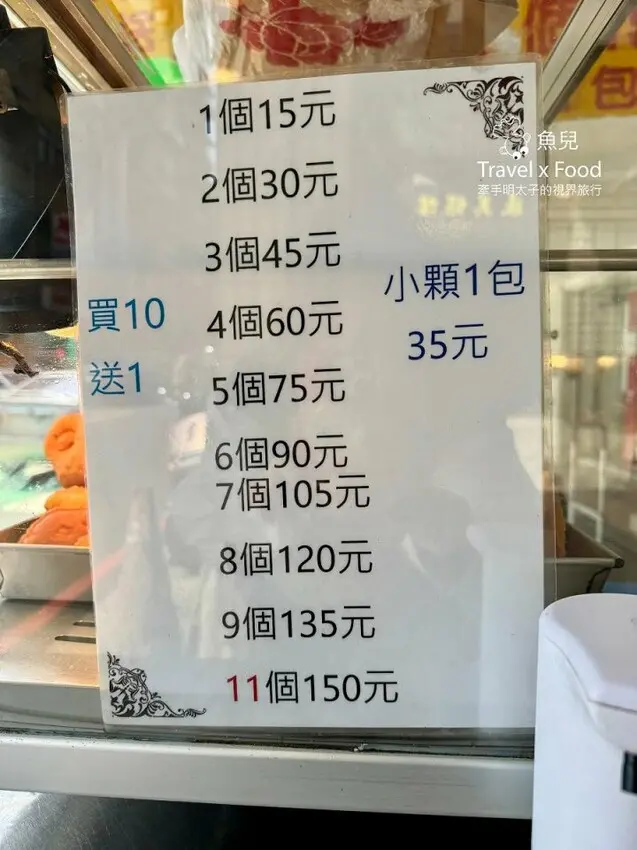 1個15元
魚兒
Travel x Food
牽手明太子的視界旅行
2個30元
3個45元
買10
送1
4個60元
小顆1包
35元
5個75元
6個90元
7個105元
8個120元
9個135元
11個150元
包